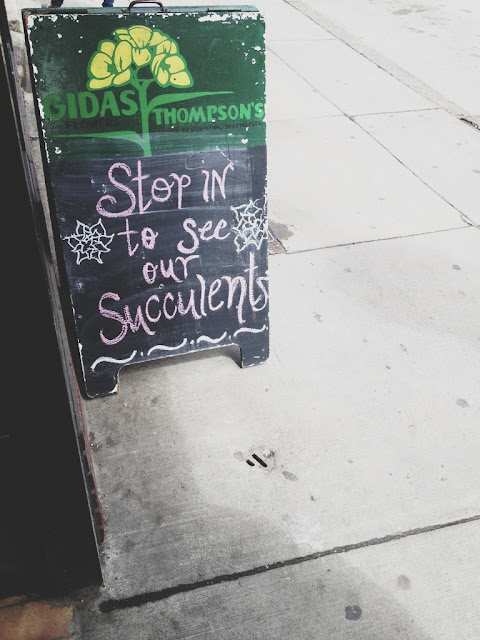 GIDAS THOMPSON'S
FLOWERS
Stop IN
to see
our
Succulents